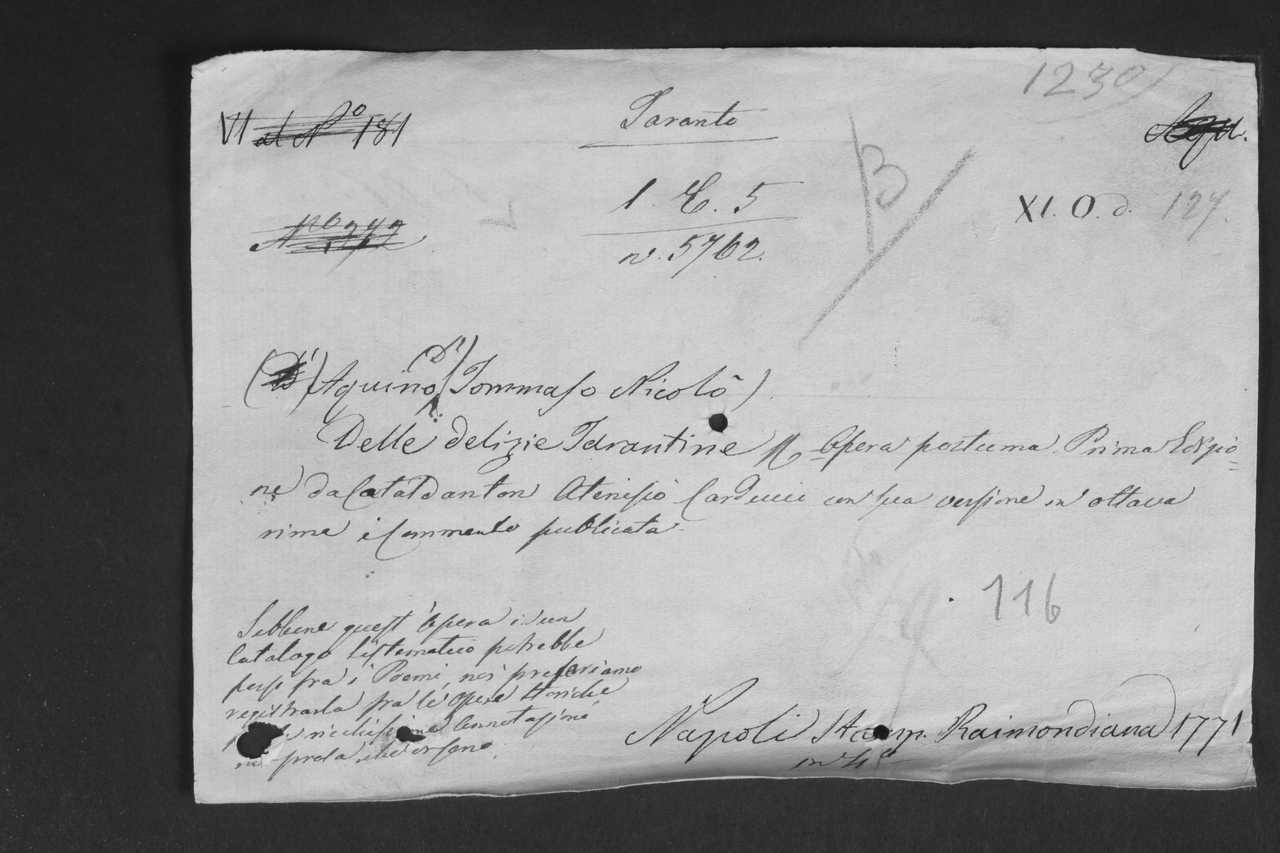 1230
VI al No 181
Taranto
Segu.
1. E. 5
B
XI. O. d. 127.
No 342
n. 5762.
(D') Aquino (D') Tommaso Nicolò)
Delle delizie Tarantine Opera postuma. Prima Edizio=
ne da Cataldanton Atenisio Carducci con sua versione in ottava
rima e Commento publicata.
116
Sebbene quest'Opera in un
Catalogo sistematico potrebbe
porsi fra i Poemi, noi preferiamo
registrarla fra le Opere storiche
ricchissime Annotazioni
in prosa che
Napoli Stamp. Raimondiana 1771
in 4o